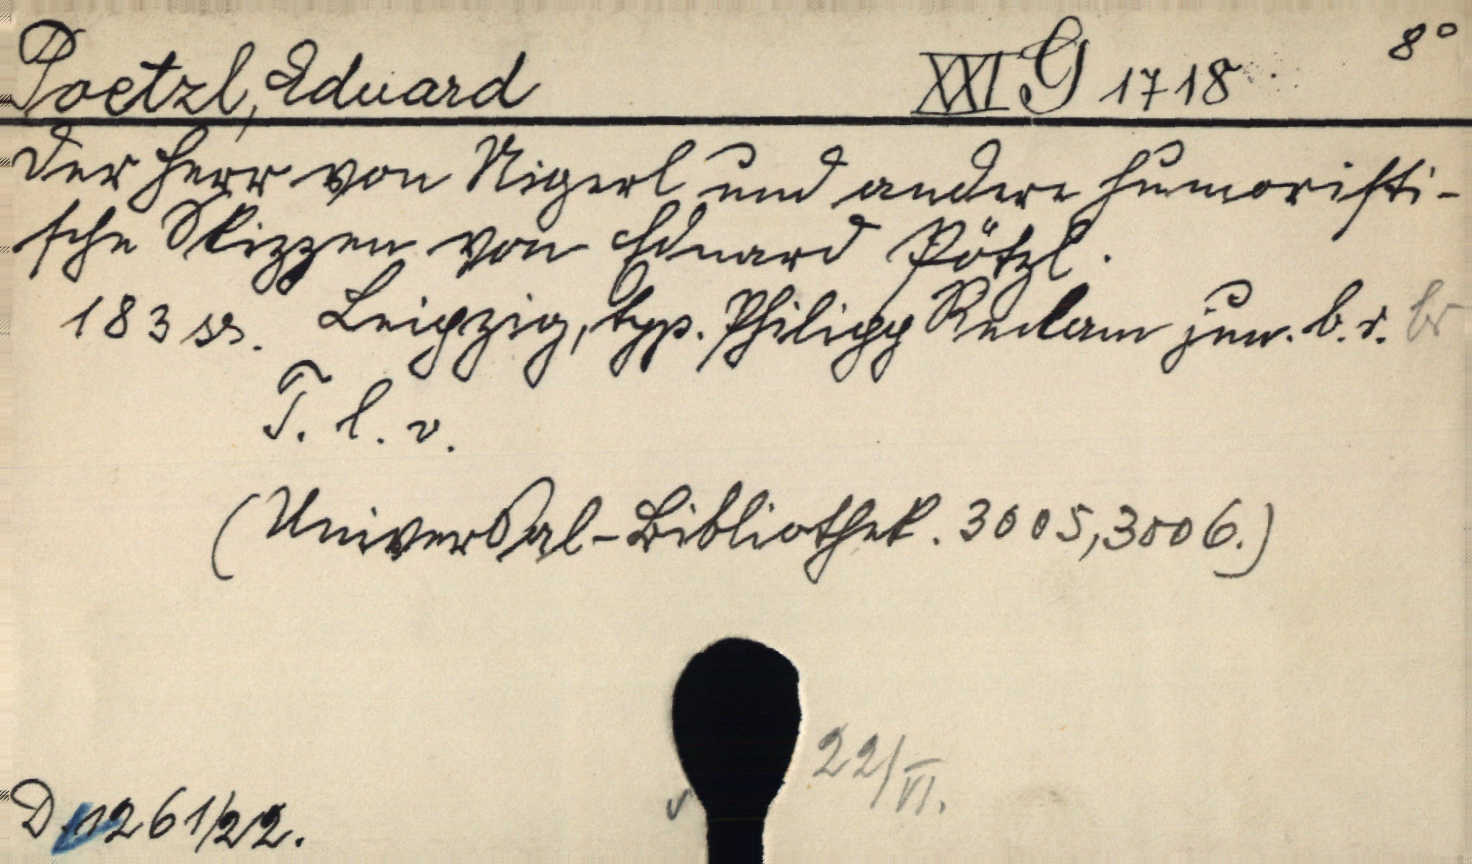 Poetzl, Eduard XXI G 1718 8°
Der Herr von Nigerl und andere humoristi-
sche Skizzen von Eduard Pötzl.
183 ss. Leipzig, typ. Philipp Reclam jun. b. r. br
T. l. v.
(Universal-Bibliothek. 3005, 3006.)
22/VI.
D. 1261/22.